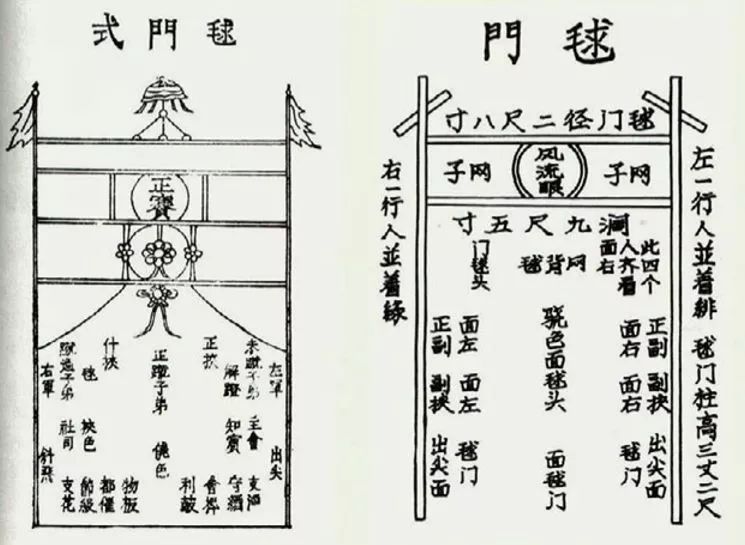 毬門
毬门径二尺八寸
网子
风流眼
网子
阔九尺五寸
左一行人並着緋 毬门柱高三丈二尺
此四个
人齐看
面右
网背毬
门毬头
正副 副挟 出尖面
面右 面右 毬门
骁色面毬头 面毬门
面左 面左 毬门
正副 副挟 出尖面
右一行人並着緑
毬門式
正賓
左軍 出尖
子弟 主會 支酒
解蹬 知賓 守酒
正挾
正蹴子弟 色
什挾
都催
物板
毬 挾色 節級
子弟 社司 支花
右軍